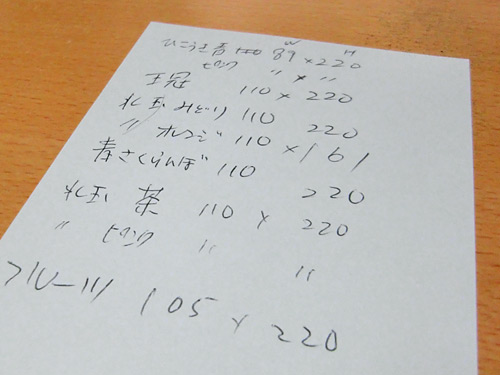 W H
ひこうき 青 89 × 220
ピンク 〃 × 〃
王冠 110 × 220
水玉 みどり 110 220
〃 オレンジ 110 × 161
青さくらんぼ 110 220
水玉 茶 110 × 220
〃 ピンク 〃 〃
フルーツ 105 × 220